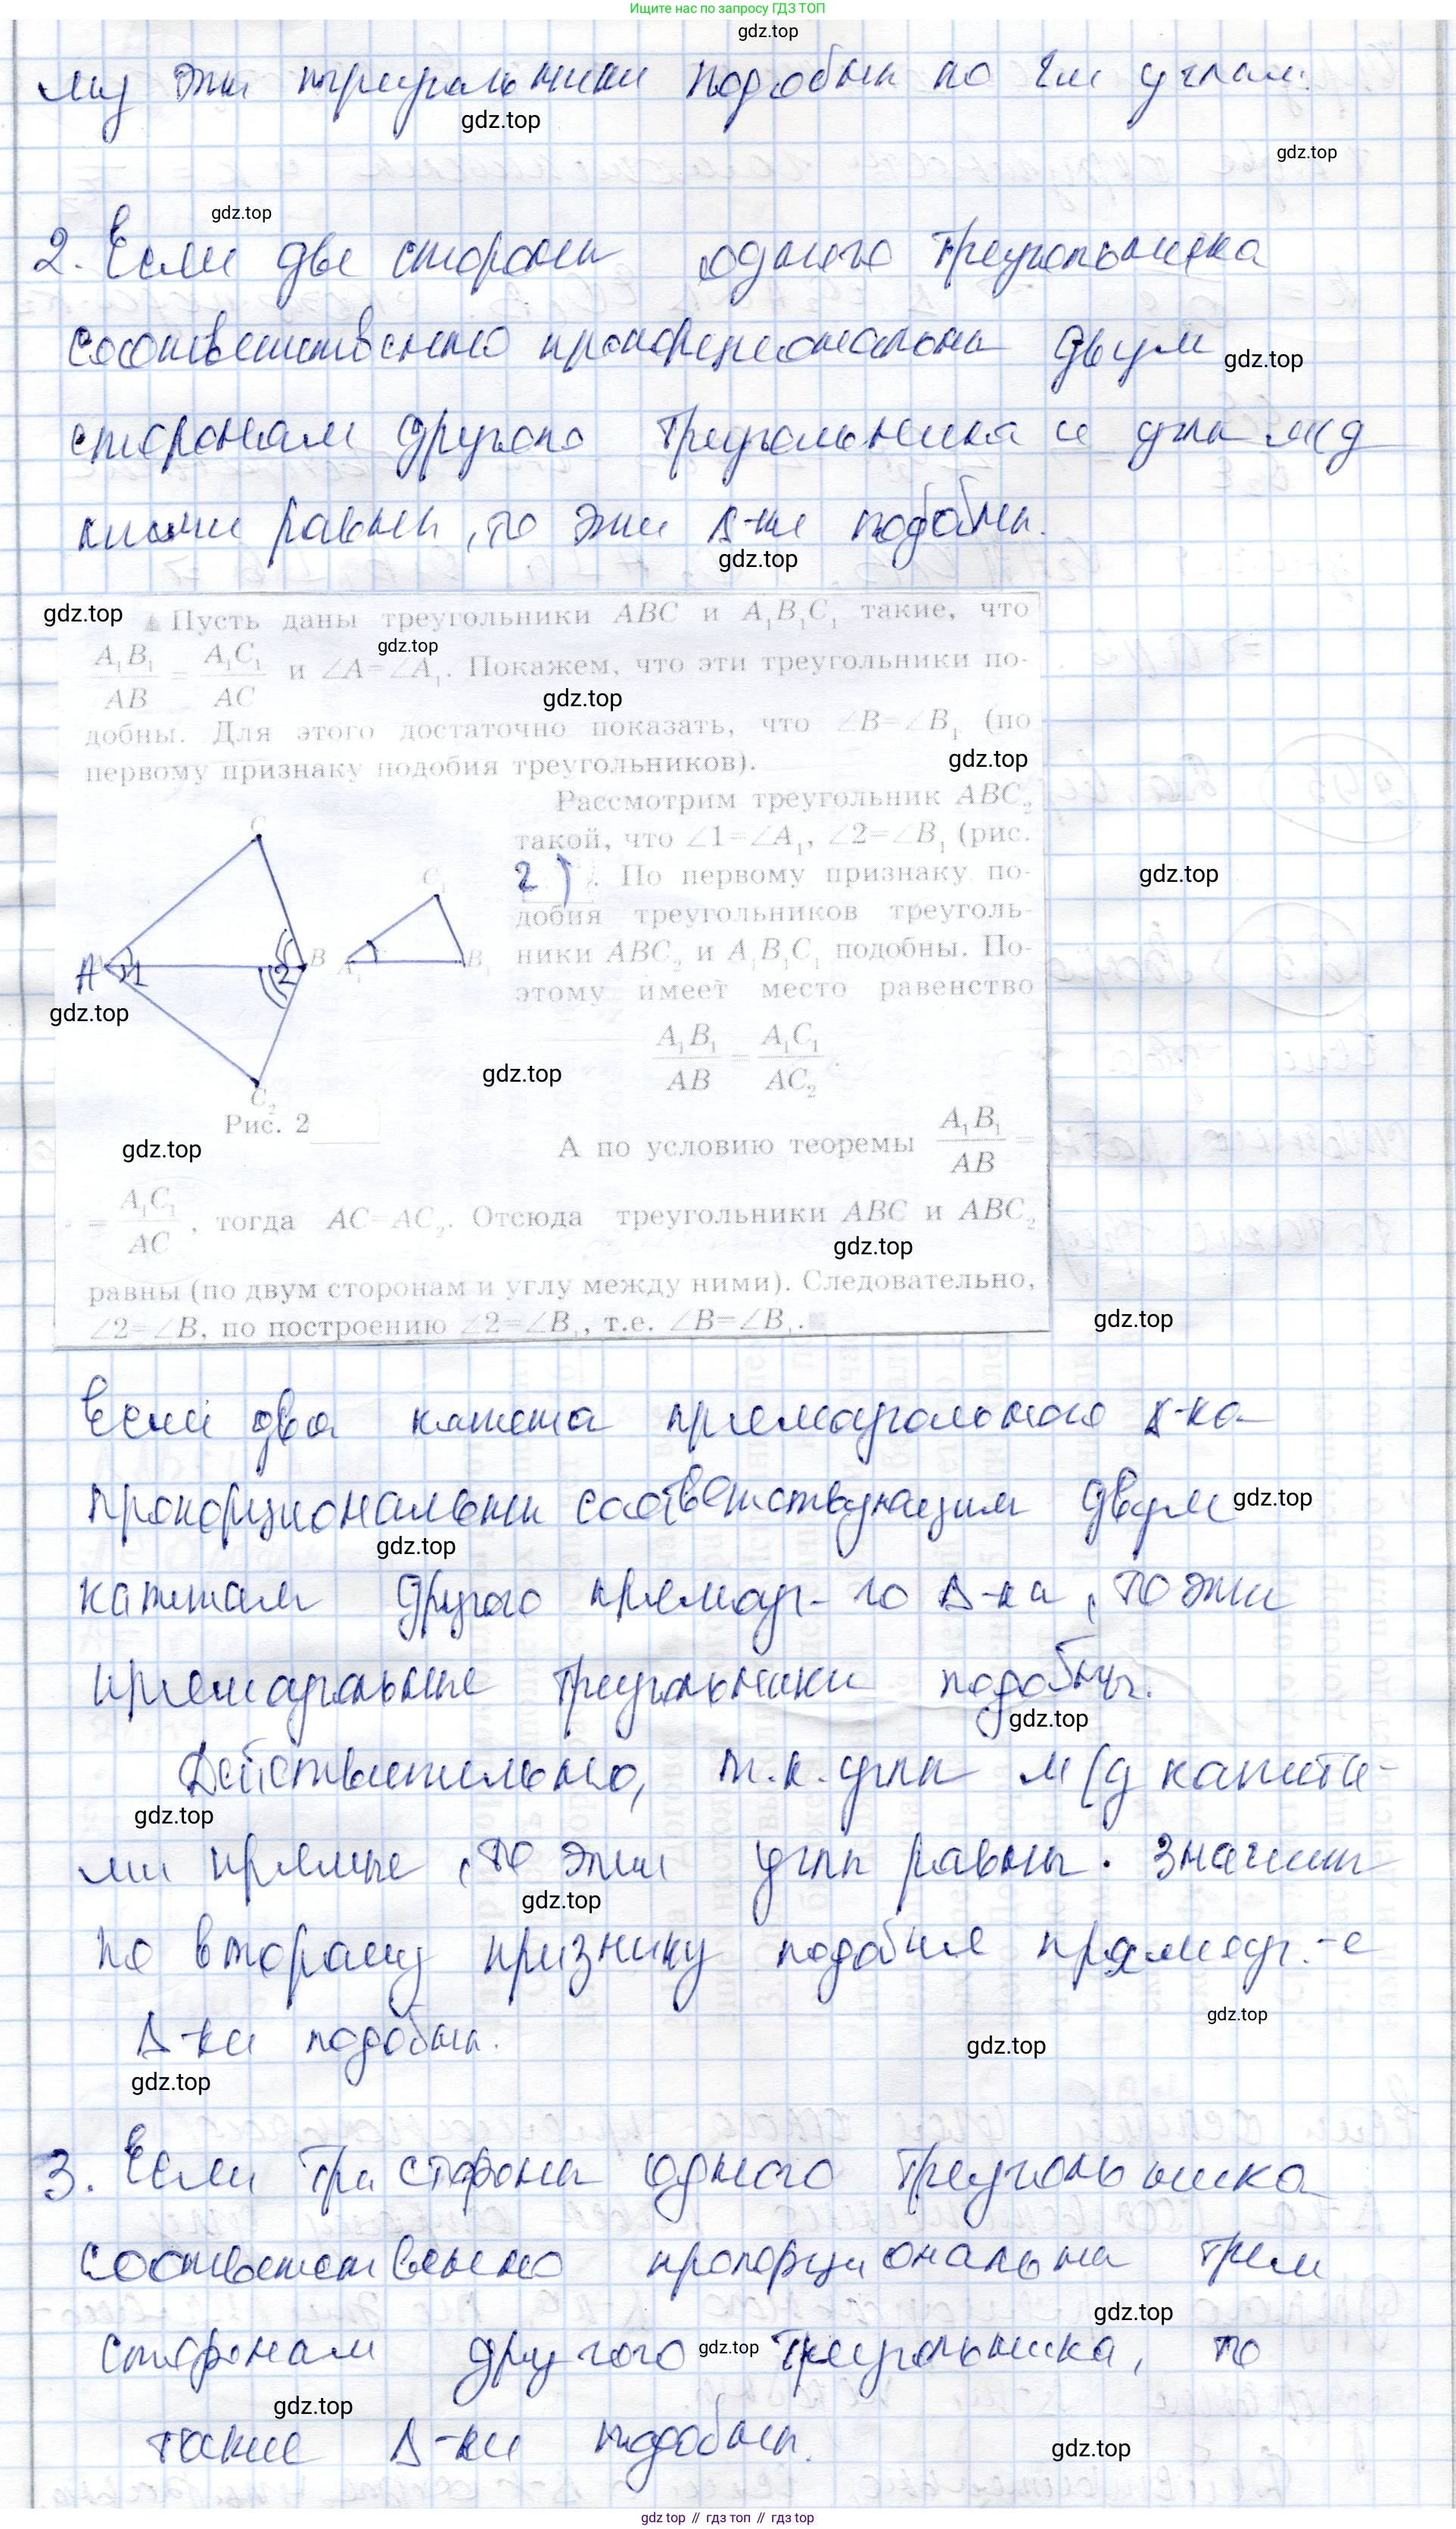 Ищите нас по запросу ГДЗ ТОП
gdz.top
му эти треугольники подобны по 2м углам.
gdz.top
gdz.top
gdz.top
2. Если две стороны одного треугольника
соответственно пропорциональны двум
gdz.top
сторонам другого треугольника и углы м/д
ними равны, то эти Δ-ки подобны.
gdz.top
gdz.top
▲ Пусть даны треугольники ABC и A₁B₁C₁ такие, что
A₁B₁/AB = A₁C₁/AC и ∠A=∠A₁. Покажем, что эти треугольники по-
gdz.top
gdz.top
добны. Для этого достаточно показать, что ∠B=∠B₁ (по
первому признаку подобия треугольников).
gdz.top
Рассмотрим треугольник ABC₂
такой, что ∠1=∠A₁, ∠2=∠B₁ (рис.
2). По первому признаку по-
gdz.top
добия треугольников треуголь-
ники ABC₂ и A₁B₁C₁ подобны. По-
этому имеет место равенство
A₁B₁/AB = A₁C₁/AC₂.
C
A 1 2 B
C₂
A₁ C₁ B₁
gdz.top
gdz.top
Рис. 2
gdz.top
А по условию теоремы A₁B₁/AB =
= A₁C₁/AC, тогда AC=AC₂. Отсюда треугольники ABC и ABC₂
gdz.top
равны (по двум сторонам и углу между ними). Следовательно,
∠2=∠B, по построению ∠2=∠B₁, т.е. ∠B=∠B₁.
gdz.top
Если два катета прямоугольного Δ-ка
пропорциональны соответствующим двум
gdz.top
gdz.top
катетам другого прямоуг-го Δ-ка, то эти
прямоугольные треугольники подобны.
gdz.top
Действительно, т.к. углы м/д катета-
gdz.top
ми прямые, то эти углы равны. Значит
gdz.top
по второму признаку подобия прямоуг.-е
Δ-ки подобны.
gdz.top
gdz.top
gdz.top
3. Если три стороны одного треугольника
соответственно пропорциональны трем
gdz.top
сторонам другого треугольника, то
gdz.top
gdz.top
такие Δ-ки подобны.
gdz.top
gdz top // гдз топ // гдз top